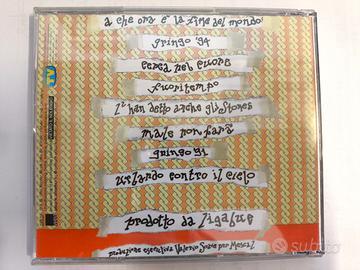 a che ora è la fine del mondo?
gringo '94
cerca nel cuore
fuoritempo
l'han detto anche gli stones
male non farà
gringo 91
urlando contro il cielo
prodotto da ligabue
produzione esecutiva Valerio Soave per Mescal
TV
subito